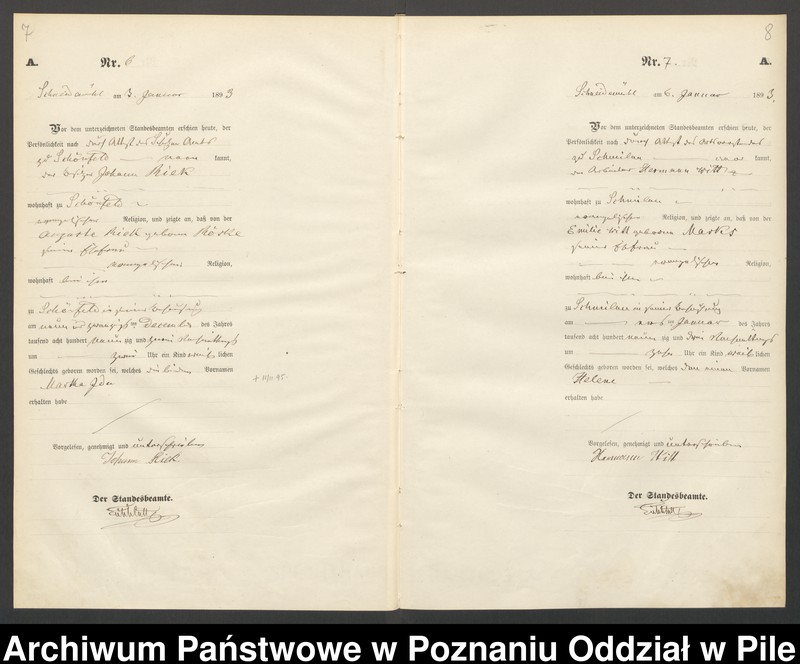 7
A. Nr. 6
Schneidemühl am 3. Januar 1893
Vor dem unterzeichneten Standesbeamten erschien heute, der
Persönlichkeit nach durch Attest des Schulzen Amts
zu Schönfeld kannt,
der Besitzer Johann Rick
wohnhaft zu Schönfeld
evangelischer Religion, und zeigte an, daß von der
Auguste Rick geborene
seiner Ehefrau
evangelischer Religion,
wohnhaft bei ihm
zu Schönfeld in seiner Behausung
am neun und zwanzigsten Dezember des Jahres
tausend acht hundert neunzig und zwei Nachmittags
um zwei Uhr ein Kind weiblichen
Geschlechts geboren worden sei, welches die beiden Vornamen
Martha Ida
erhalten habe
Vorgelesen, genehmigt und unterschrieben
Johann Rick
Der Standesbeamte.
8
Nr. 7. A.
Schneidemühl am 6. Januar 1893.
Vor dem unterzeichneten Standesbeamten erschien heute, der
Persönlichkeit nach durch Attest des Ortsvorstandes
zu kannt,
der Arbeiter Hermann Witt
wohnhaft zu
evangelischer Religion, und zeigte an, daß von der
Emilie Witt geborenen Marks
seiner Ehefrau
evangelischer Religion,
wohnhaft bei ihm
zu in seiner Behausung
am Januar des Jahres
tausend acht hundert neunzig und drei Nachmittags
um zehn Uhr ein Kind weiblichen
Geschlechts geboren worden sei, welches den einen Vornamen
Helene
erhalten habe
Vorgelesen, genehmigt und unterschrieben
Hermann Witt
Der Standesbeamte.
Archiwum Państwowe w Poznaniu Oddział w Pile